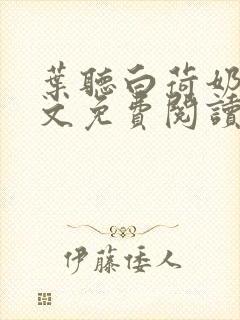 葉聽白荷奶
文免費閱讀
伊藤倭人